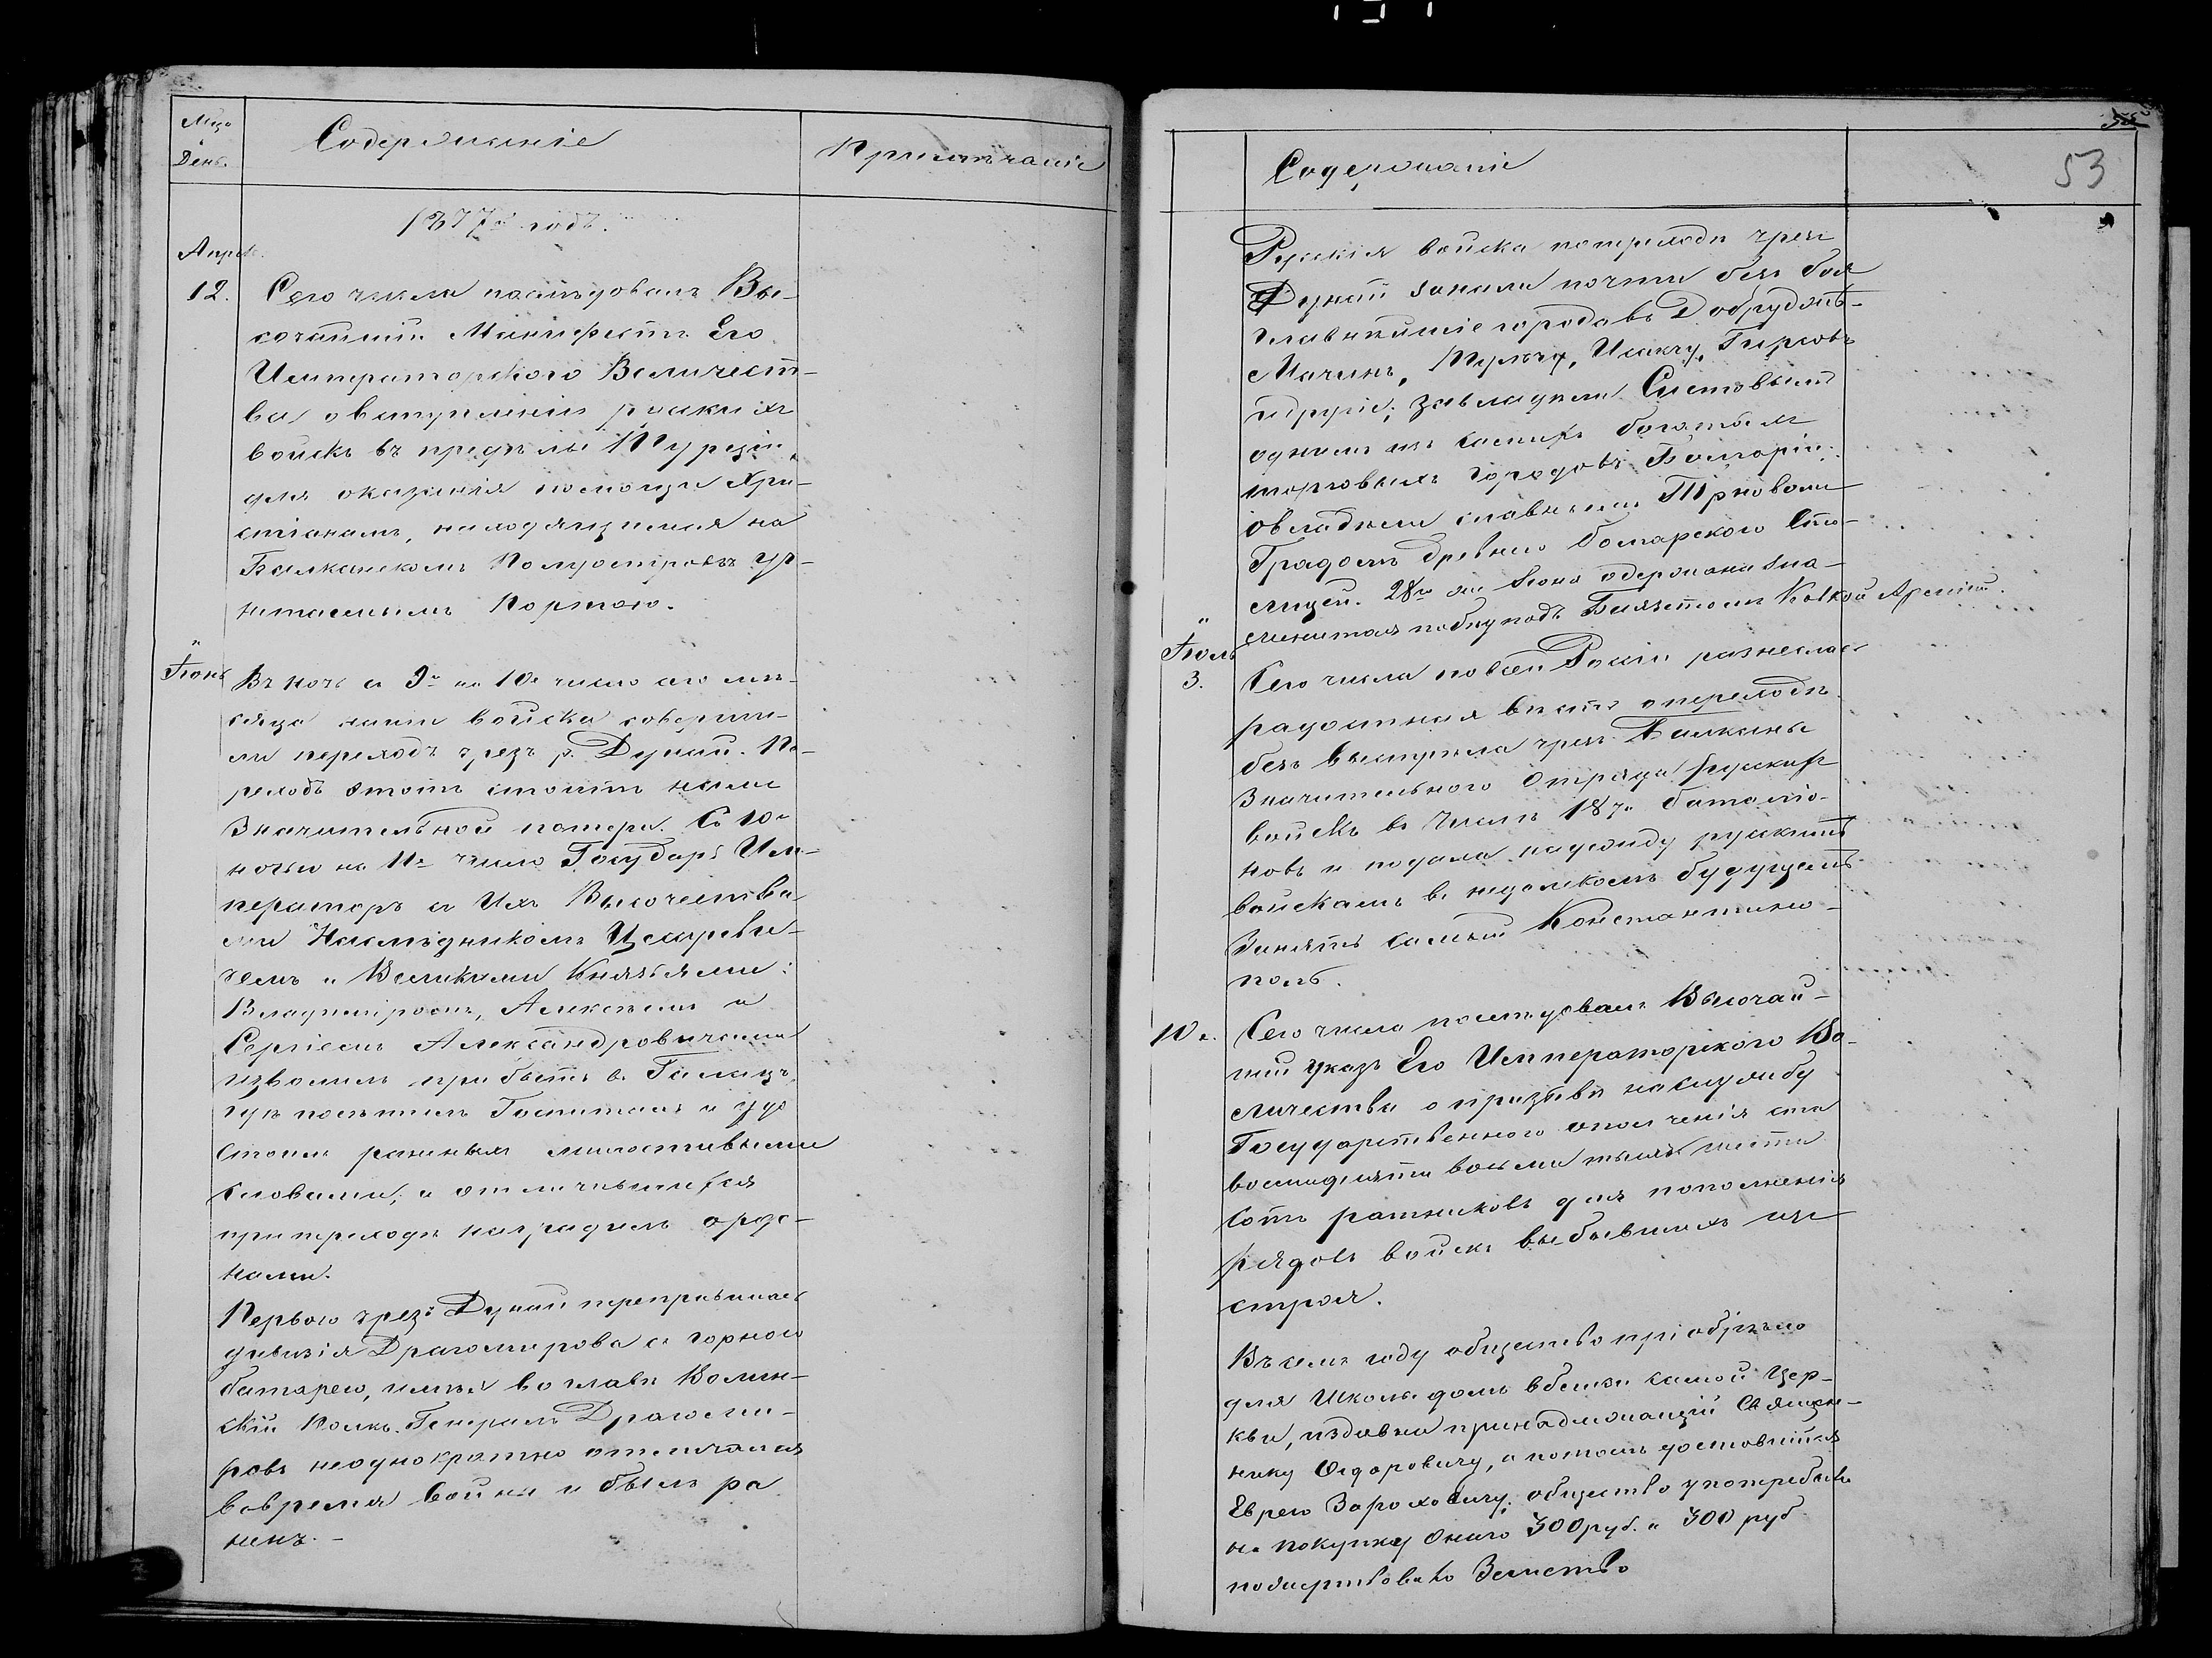 Мцъ
и
День.
Содержаніе
Примѣчаніе
1877й годъ.
Апрѣль.
12. Сего числа послѣдовалъ Вы-
сочайшій Манифестъ Его
Императорского Величест-
ва о вступленіи рускихъ
войскъ въ предѣлы Турціи,
для оказанія помощи Хри-
стіанамъ, находящимся на
Балканскомъ Полуостровѣ уг-
нѣтаемымъ Портою.
Іюнь Въ ночь съ 9го на 10е число сего мѣ-
сяца наши войска соверши-
ли переходъ чрезъ р. Дунай. Пе-
реходъ этотъ стоитъ намъ
значительной потери. Съ 10го
ночью на 11е число Государь Им-
ператоръ съ Ихъ Высочества-
ми Наслѣдникомъ Цесареви-
чемъ и Великими Князьями:
Владиміромъ, Алексѣемъ и
Сергіемъ Александровичами
изволилъ прибыть въ Галацъ,
гдѣ посѣтилъ Госпиталь и удо
стоилъ раненыхъ милостивыми
словами; а отличившихся
при переходѣ наградилъ орде-
нами.
Первою чрезъ Дунай переправилась
дивизія Драгомирова съ горною
батареею, имѣя во главѣ Волын-
скій Полкъ. Генералъ Драгоми-
ровъ неоднократно отличался
вовремя войны и былъ ра
ненъ. –
Содержаніе
53
Рускія войска попереходѣ чрезъ
Дунай заняли почти безъ боя
главнѣйшіе города въ Добруджѣ-
Мачинъ, Тульчу, Исакчу, Гирсовъ
и другіе; завладѣли Систовымъ
однимъ изъ самыхъ богатыхъ
торговыхъ городовъ Болгаріи;
овладѣли славнымъ Тырновомъ
Градомъ древнею болгарского Сто-
лицей. 28го же Іюня одержана зна-
менитая побѣда подъ Баязетомъ Кавкой Арміи.
Іюль
3. Сего числа по всей Россіи разнеслась
радостная вѣсть о переходѣ
безъ выстрѣла чрезъ Балканы
Значительного Отряда рускихъ
войскъ въ числѣ 18ти баталіо-
новъ и подала надежду рускимъ
войскамъ въ недалекомъ будущемъ
Занять самый Константино-
поль.
10е. Сего числа послѣдовалъ Высочай-
шій указъ Его Императорского Ве-
личества о призывѣ на службу
Государственного ополченія ста
восмидесяти восьми тысячъ шести
сотъ ратниковъ для пополненія
рядовъ войскъ выбывшихъ изъ
строя.
Въ семъ году общество пріобрѣло
для Школы домъ вблизи самой Цер-
кви, издавна принадлежащій Священ-
нику Сидоровичу, а потомъ доставшійся
Еврею Зароховичу; общество употребило
на покупку онаго 300 руб. и 300 руб
пожертвовало Земство